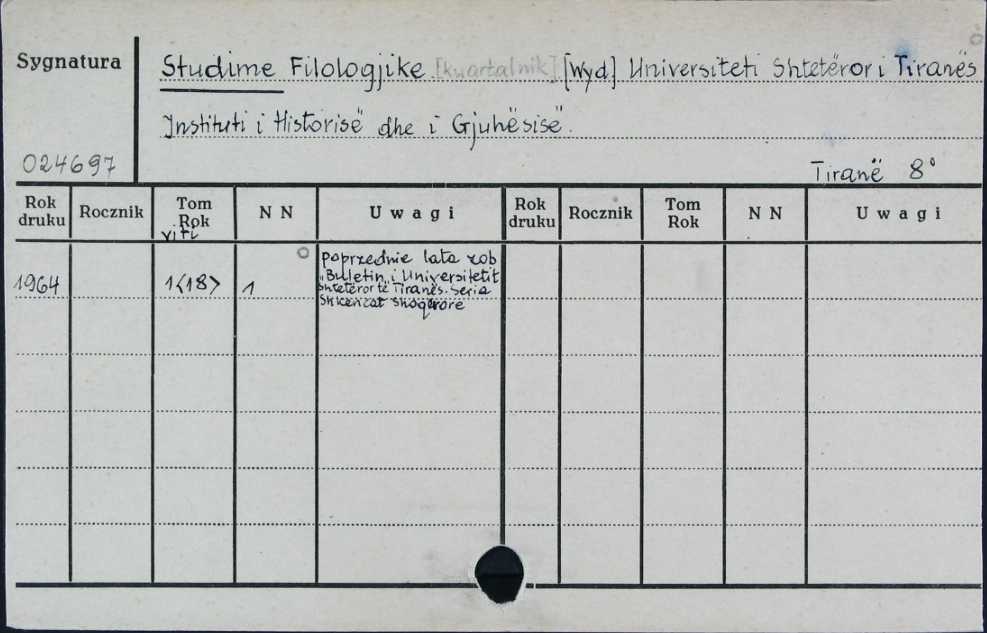 Sygnatura
Studime Filologjike [kwartalnik] [Wyd] Universiteti Shtetëror i Tiranës
Instituti i Historisë dhe i Gjuhësisë.
024697
Tiranë 8°
Rok druku Rocznik Tom Rok N N Uwagi Rok druku Rocznik Tom Rok N N Uwagi
viti
1964 1<18> 1 poprzednie lata zob
"Buletin i Universitetit
Shtetëror të Tiranës. Seria
Shkencat Shoqërore